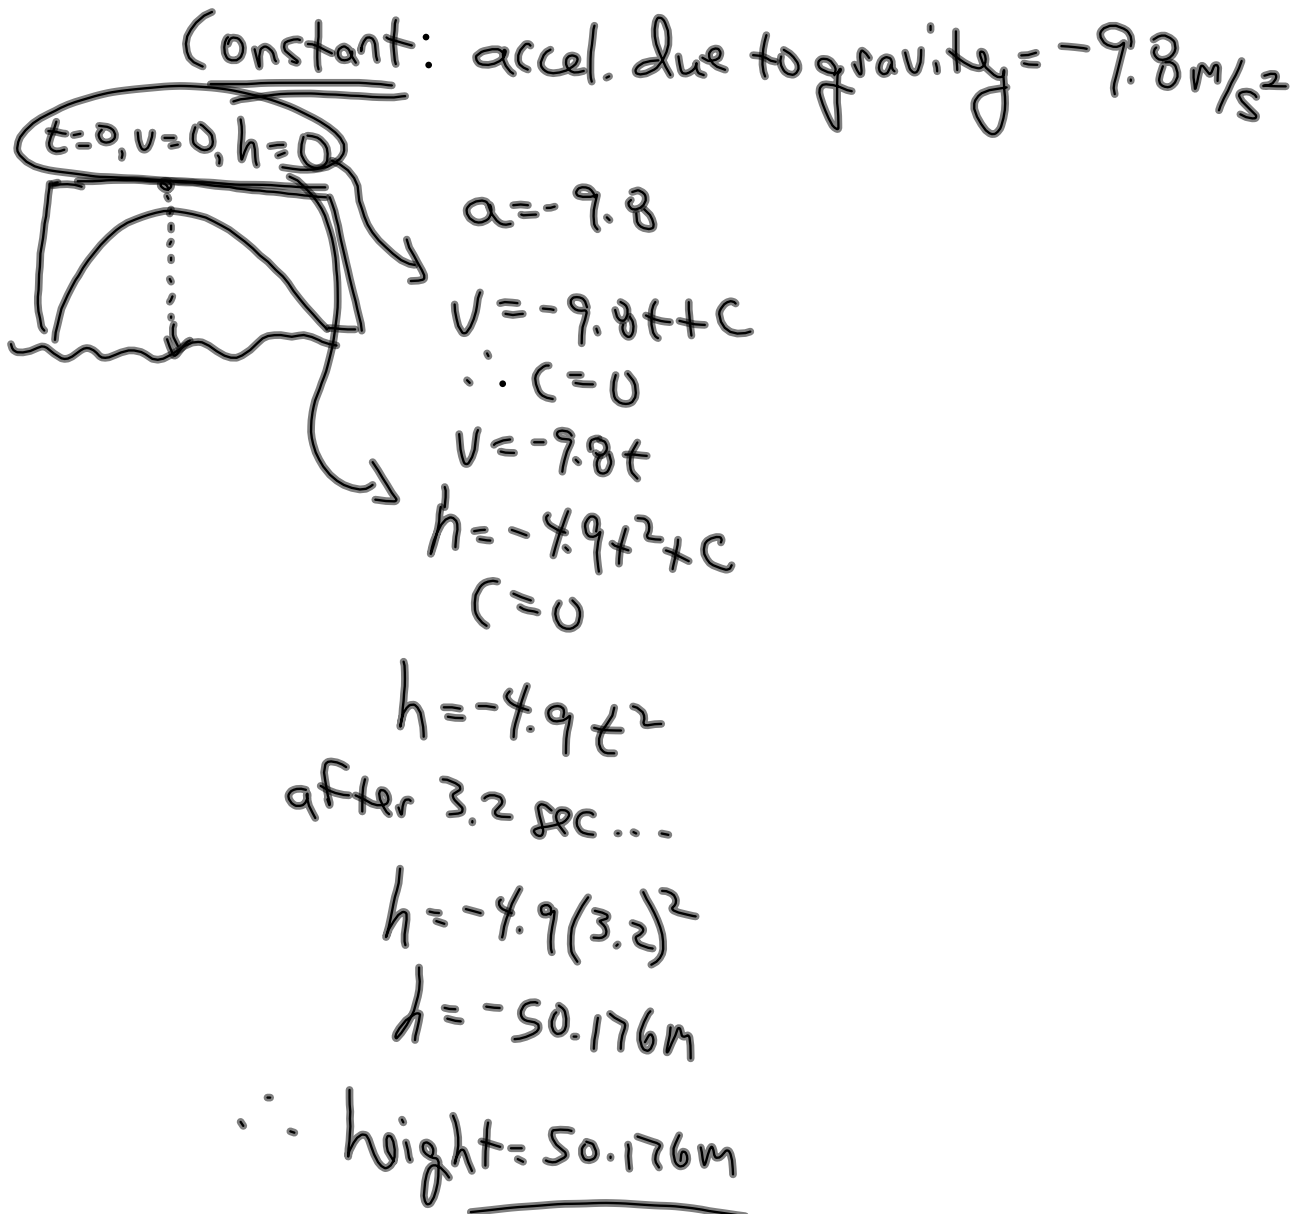 Constant: accel. due to gravity = -9.8 m/s²
t=0, v=0, h=0
a=-9.8
v=-9.8t+C
∴ C=0
v=-9.8t
h=-4.9t²+C
C=0
h=-4.9t²
after 3.2 sec...
h=-4.9(3.2)²
h=-50.176m
∴ height=50.176m